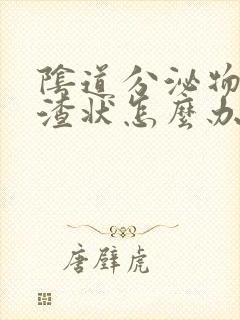 陰道分泌物
渣狀怎麼办
唐壁虎